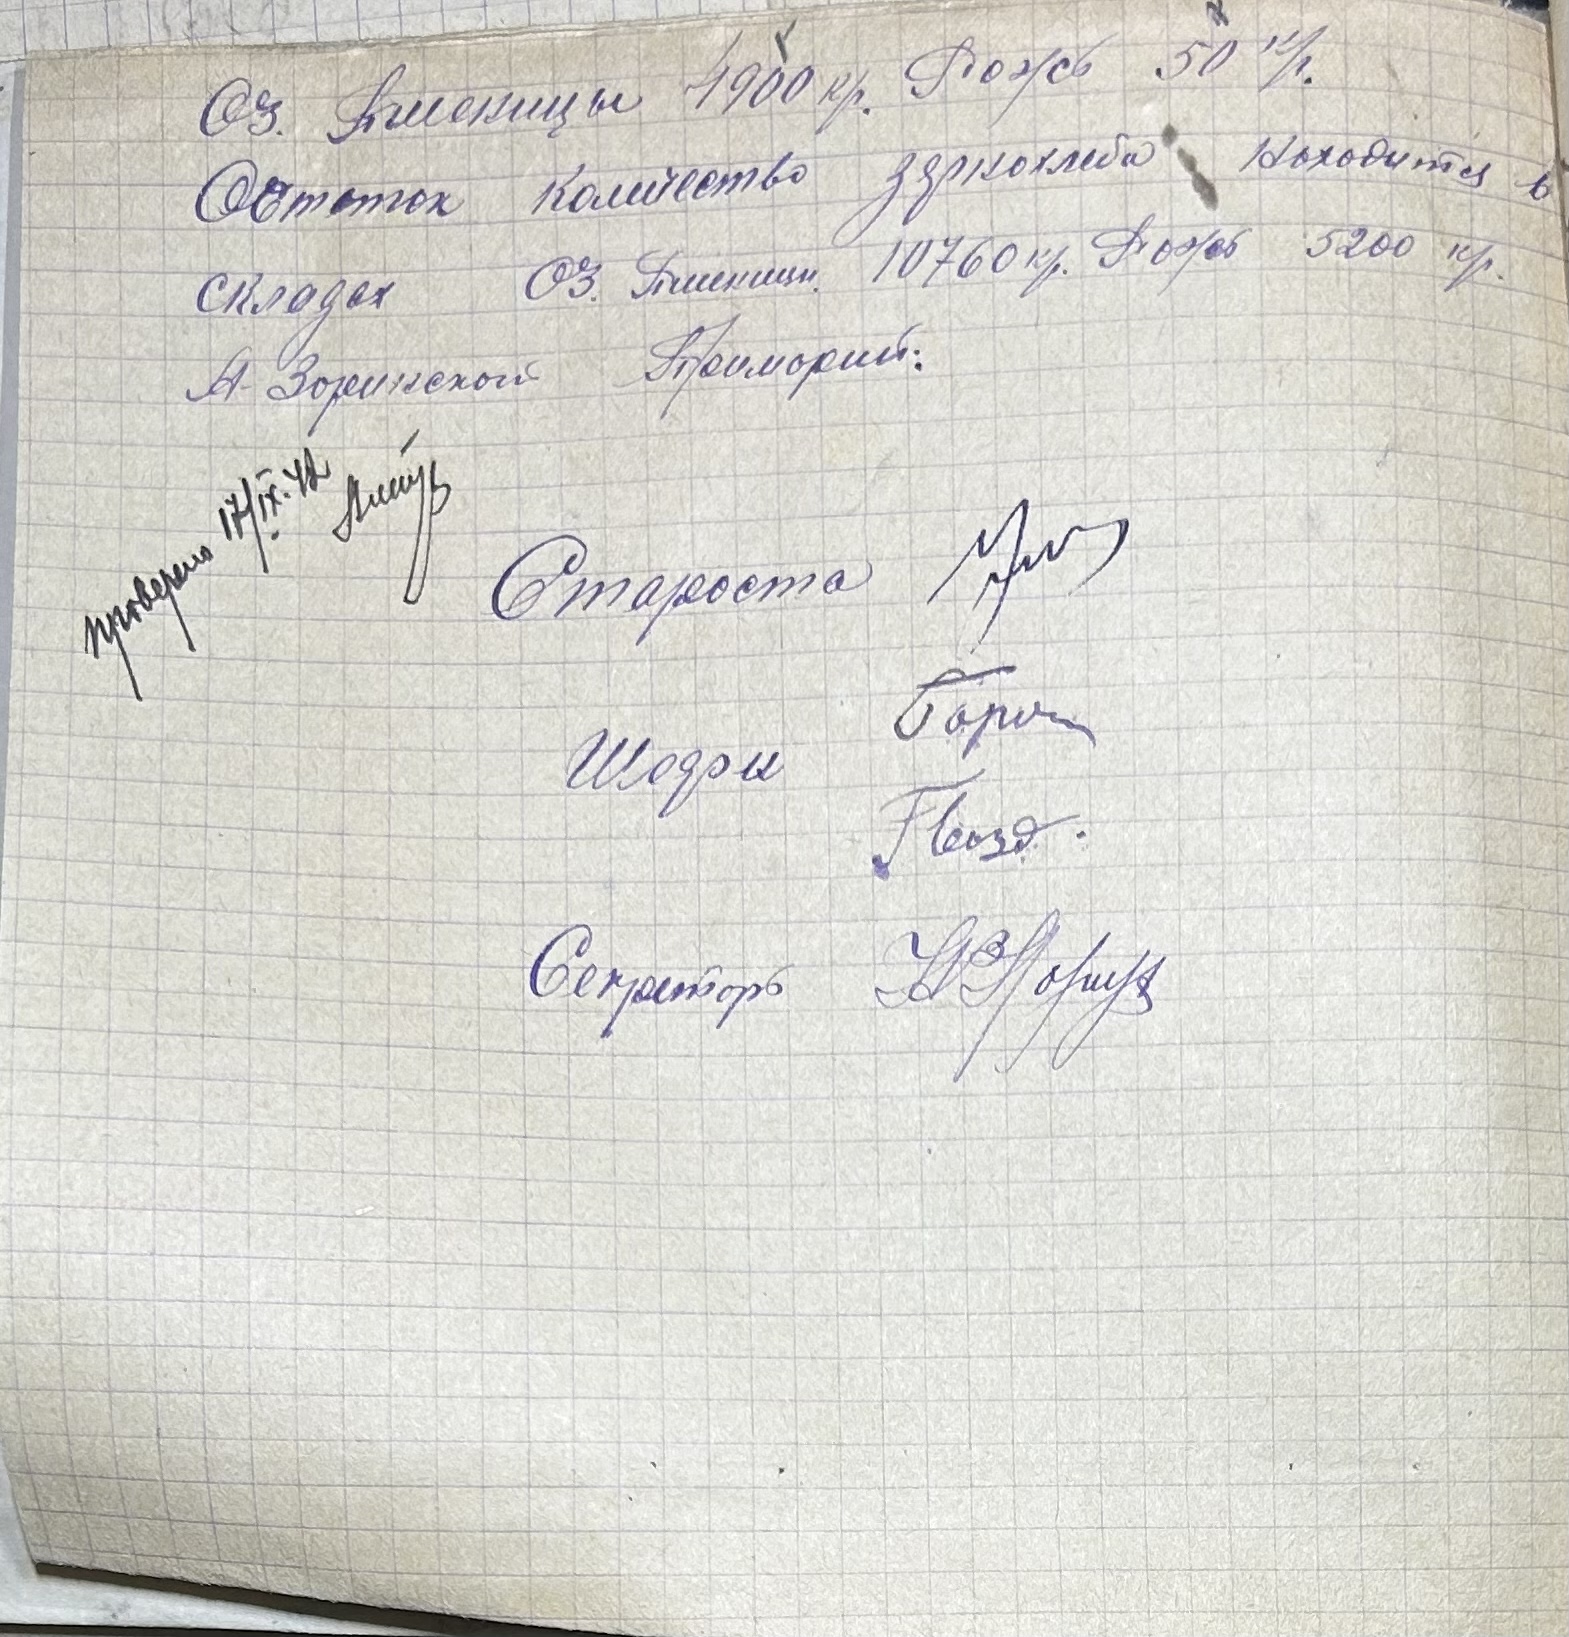 Оз. Пшеницы 4900 кр. Рожь 50 кр.
Остаток количество зернохлеба находится в
складах Оз. Пшениц. 10760 кр. Рожь 5200 кр.
А-Зоринской
проверено 17/IX.42
Староста
Шодри
Гвозд.
Секреторь